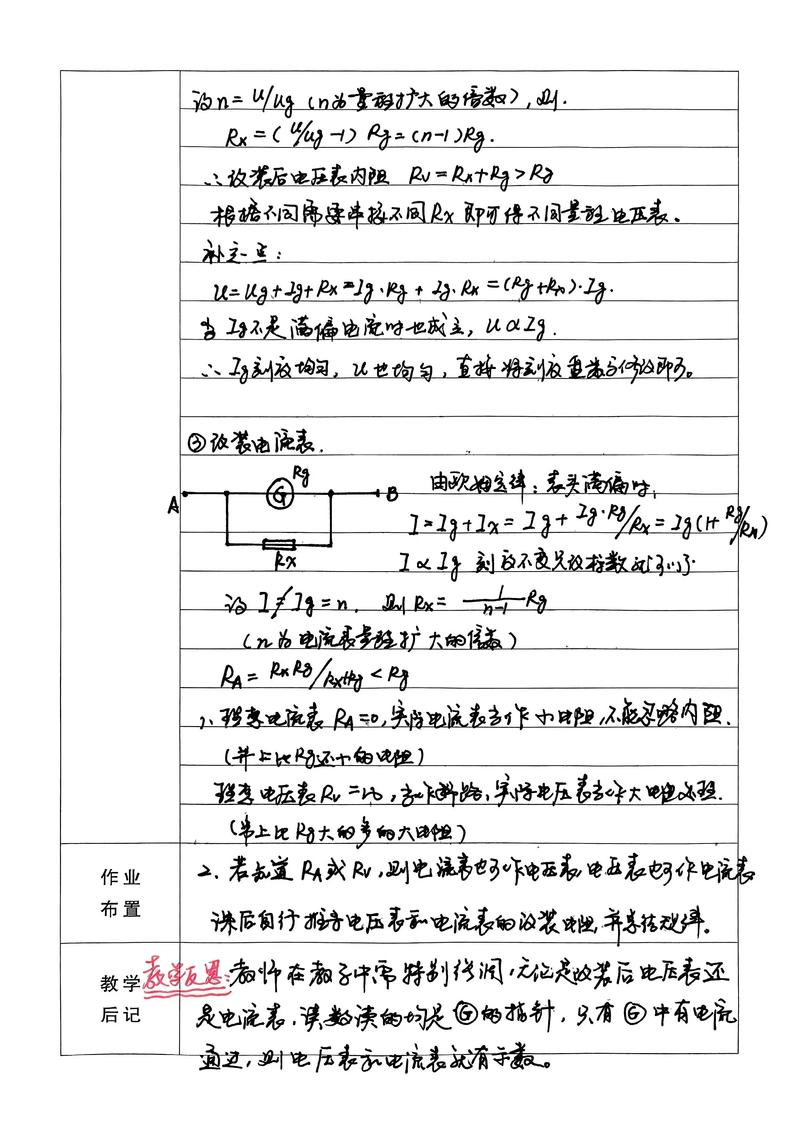 设n=U/Ug(n为量程扩大的倍数),则.
Rx=(U/Ug-1) Rg=(n-1)Rg.
∴改装后电压表内阻 Rv=Rx+Rg>Rg
根据不同需要串接不同Rx即可得不同量程电压表。
补充一点:
U=Ug+Ig+Rx=Ig·Rg+Ig·Rx=(Rg+Rx)·Ig.
当Ig不是满偏电流时也成立,U∝Ig.
∴Ig刻度均匀,U也均匀,直接将刻度盘 修改即可。
③改装电流表.
Rg
A G B
Rx
由欧姆定律:表头满偏时,
I=Ig+Ix=Ig+Ig·Rg/Rx=Ig(1+Rg/Rx)
I∝Ig 刻度不变只改示数就可以了.
设I/Ig=n. 则Rx=1/(n-1) Rg
(n为电流表量程扩大的倍数)
RA=RxRg/Rx+Rg<Rg
1、理想电流表RA=0,实际电流表当作小电阻,不能忽略内阻.
(并上比Rg还小的电阻)
理想电压表Rv=∞,当作断路,实际电压表当作大电阻处理.
(串上比Rg大的多的大电阻)
作业布置
2、若知道RA或Rv,则电流表也可作电压表,电压表也可作电流表
课后自行推导电压表和电流表的改装电阻,并总结规律。
教学后记
教学反思:教师在教学中需特别强调,无论是改装后电压表还
是电流表,读数读的均是G的指针,只有G中有电流
通过,则电压表和电流表就有示数。